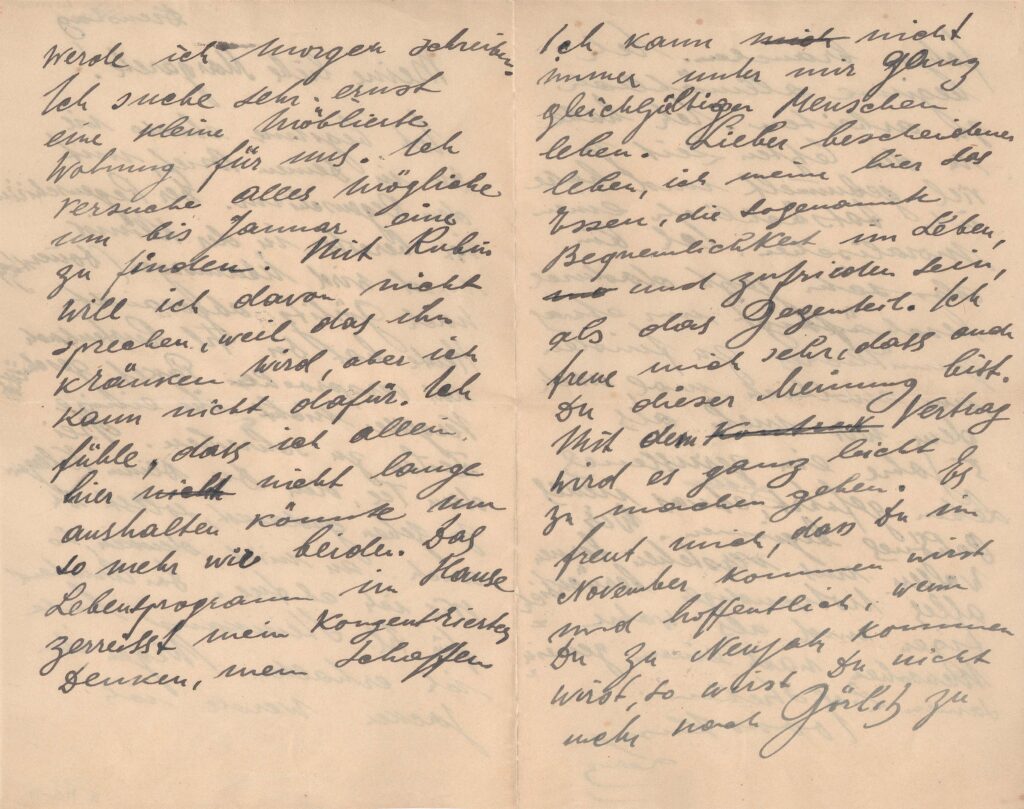 werde ich morgen schreiben.
Ich suche sehr ernst
eine kleine möblierte
Wohnung für uns. Ich
versuche alles mögliche
um bis Januar eine
zu finden. Mit Rubin
will ich davon nicht
sprechen, weil das ihn
kränken wird, aber ich
kann nicht dafür. Ich
fühle, dass ich allein
hier nicht nicht lange
aushalten könnte um
so mehr wir beiden. Das
Lebensprogramm im Hause
zerreisst mein Konzentriertes
Denken, mein Schaffen
Ich kann mich nicht
immer unter mir ganz
gleichgültiger Menschen
leben. Lieber bescheidener
leben, ich meine hier das
Essen, die sogenannte
Bequemlichkeit im Leben,
und zufrieden sein,
als das Gegenteil. Ich
freue mich sehr, dass auch
Du dieser Meinung bist.
Mit dem Kontrakt Vertrag
wird es ganz leicht
zu machen gehen. Es
freut mich, dass Du im
November kommen wirst
und hoffentlich, wenn
Du zu Neujahr kommen
wirst, so wirst Du nicht
mehr nach Görlitz zu